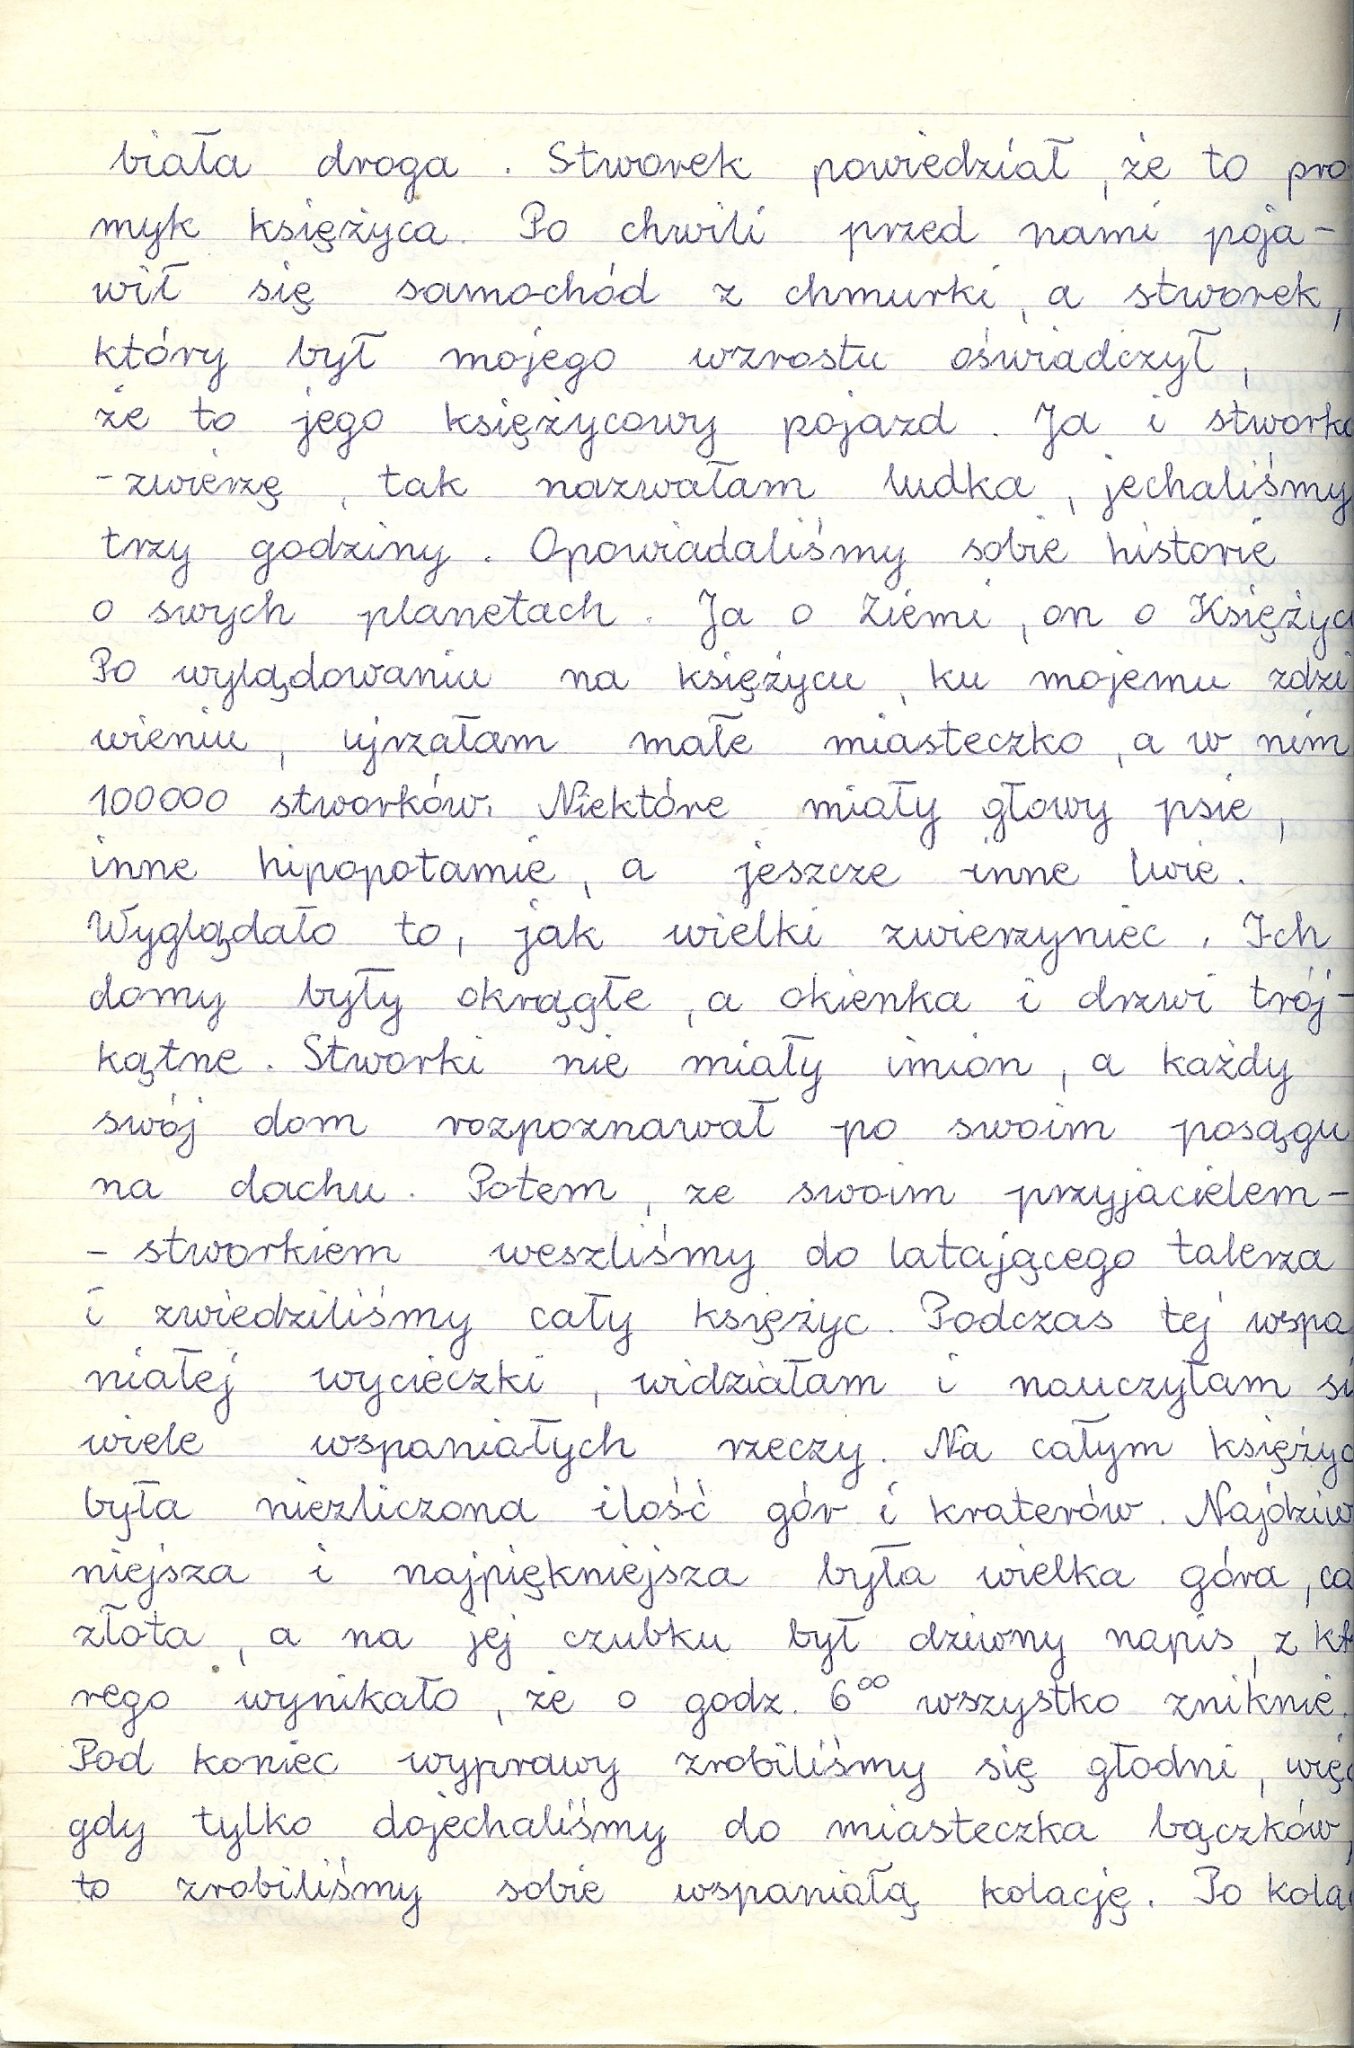 biała droga. Stworek powiedział, że to pro
myk księżyca. Po chwili przed nami poja-
wił się samochód z chmurki, a stworek,
który był mojego wzrostu oświadczył,
że to jego księżycowy pojazd. Ja i stworko
-zwierzę, tak nazwałam ludka, jechaliśmy
trzy godziny. Opowiadaliśmy sobie historie
o swych planetach. Ja o Ziemi, on o Księżyc
Po wylądowaniu na księżycu, ku mojemu zdzi
wieniu, ujrzałam małe miasteczko, a w nim
100000 stworków. Niektóre miały głowy psie,
inne hipopotamie, a jeszcze inne lwie.
Wyglądało to, jak wielki zwierzyniec. Ich
domy były okrągłe, a okienka i drzwi trój-
kątne. Stworki nie miały imion, a każdy
swój dom rozpoznawał po swoim posągu
na dachu. Potem, ze swoim przyjacielem-
- stworkiem weszliśmy do latającego talerza
i zwiedziliśmy cały księżyc. Podczas tej wspa
niałej wycieczki, widziałam i nauczyłam si
wiele wspaniałych rzeczy. Na całym księżyc
była niezliczona ilość gór i kraterów. Najdziw
niejsza i najpiękniejsza była wielka góra, ca
złota, a na jej czubku był dziwny napis, z któ
rego wynikało, że o godz. 6⁰⁰ wszystko zniknie.
Pod koniec wyprawy zrobiliśmy się głodni, więc
gdy tylko dojechaliśmy do miasteczka bączków,
to zrobiliśmy sobie wspaniałą kolację. Po kolac